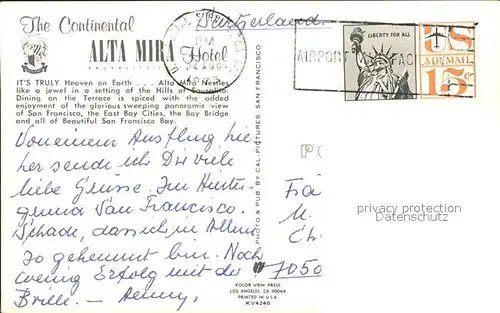 Deutschland
The Continental
ALTA MIRA
Hotel
SAUSALITO
IT'S TRULY Heaven on Earth . . . Alta Mira Nestles
like a jewel in a setting of the Hills of Sausalito.
Dining on the Terrace is spiced with the added
enjoyment of the glorious sweeping panoramic view
of San Francisco, the East Bay Cities, the Bay Bridge
and all of Beautiful San Francisco Bay.
PM
AUG
LIBERTY FOR ALL
AIRPORT
FAC
US
AIR MAIL
15¢
Von einem Ausflug hie
her sende ich Dir viele
liebe Grüsse. Im Hinter-
grund San Francisco.
Schade, dass ich in Allem
so gehemmt bin. Noch
wenig Erfolg mit der
Brille. -
PHOTO & PUB. BY CAL-PICTURES, SAN FRANCISCO
PO
7050
privacy protection
Datenschutz
COLOR VIEW PRESS
LOS ANGELES, CA 90064
PRINTED IN U.S.A.
KV4240